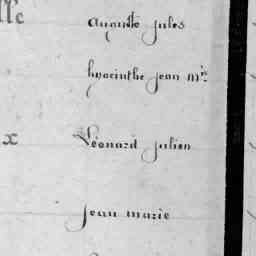 auguste jules
hyacinthe jean m.ie
x Léonard julien
jean marie